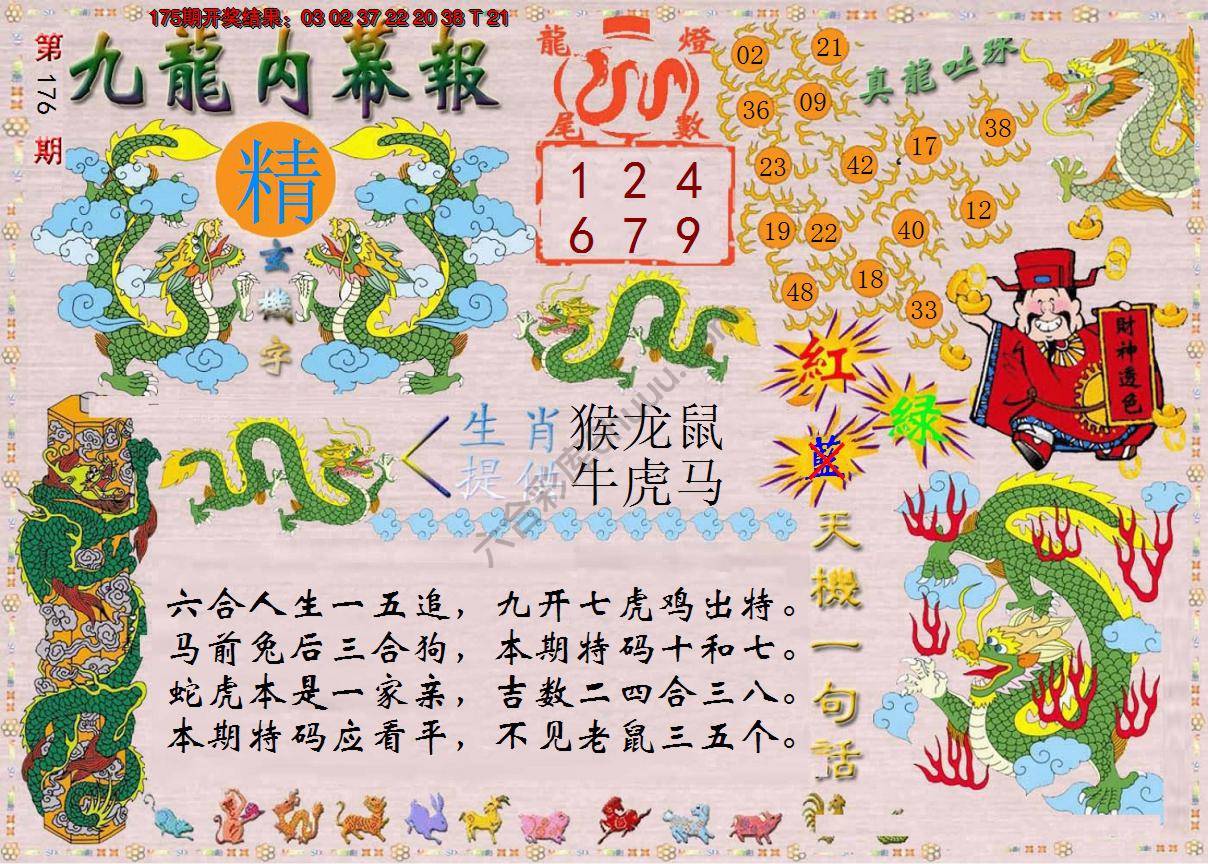 175期开奖结果：03 02 37 22 20 38 T 21
第176期
九龍内幕報
精
玄機字
龍燈尾數
1 2 4
6 7 9
真龍吐珠
02 21
36 09
17 38
23 42
12
19 22 40
18
48 33
財神透色
紅
綠
藍
生肖 猴龙鼠
提供 牛虎马
六合人生一五追，九开七虎鸡出特。
马前兔后三合狗，本期特码十和七。
蛇虎本是一家亲，吉数二四合三八。
本期特码应看平，不见老鼠三五个。
天機一句話